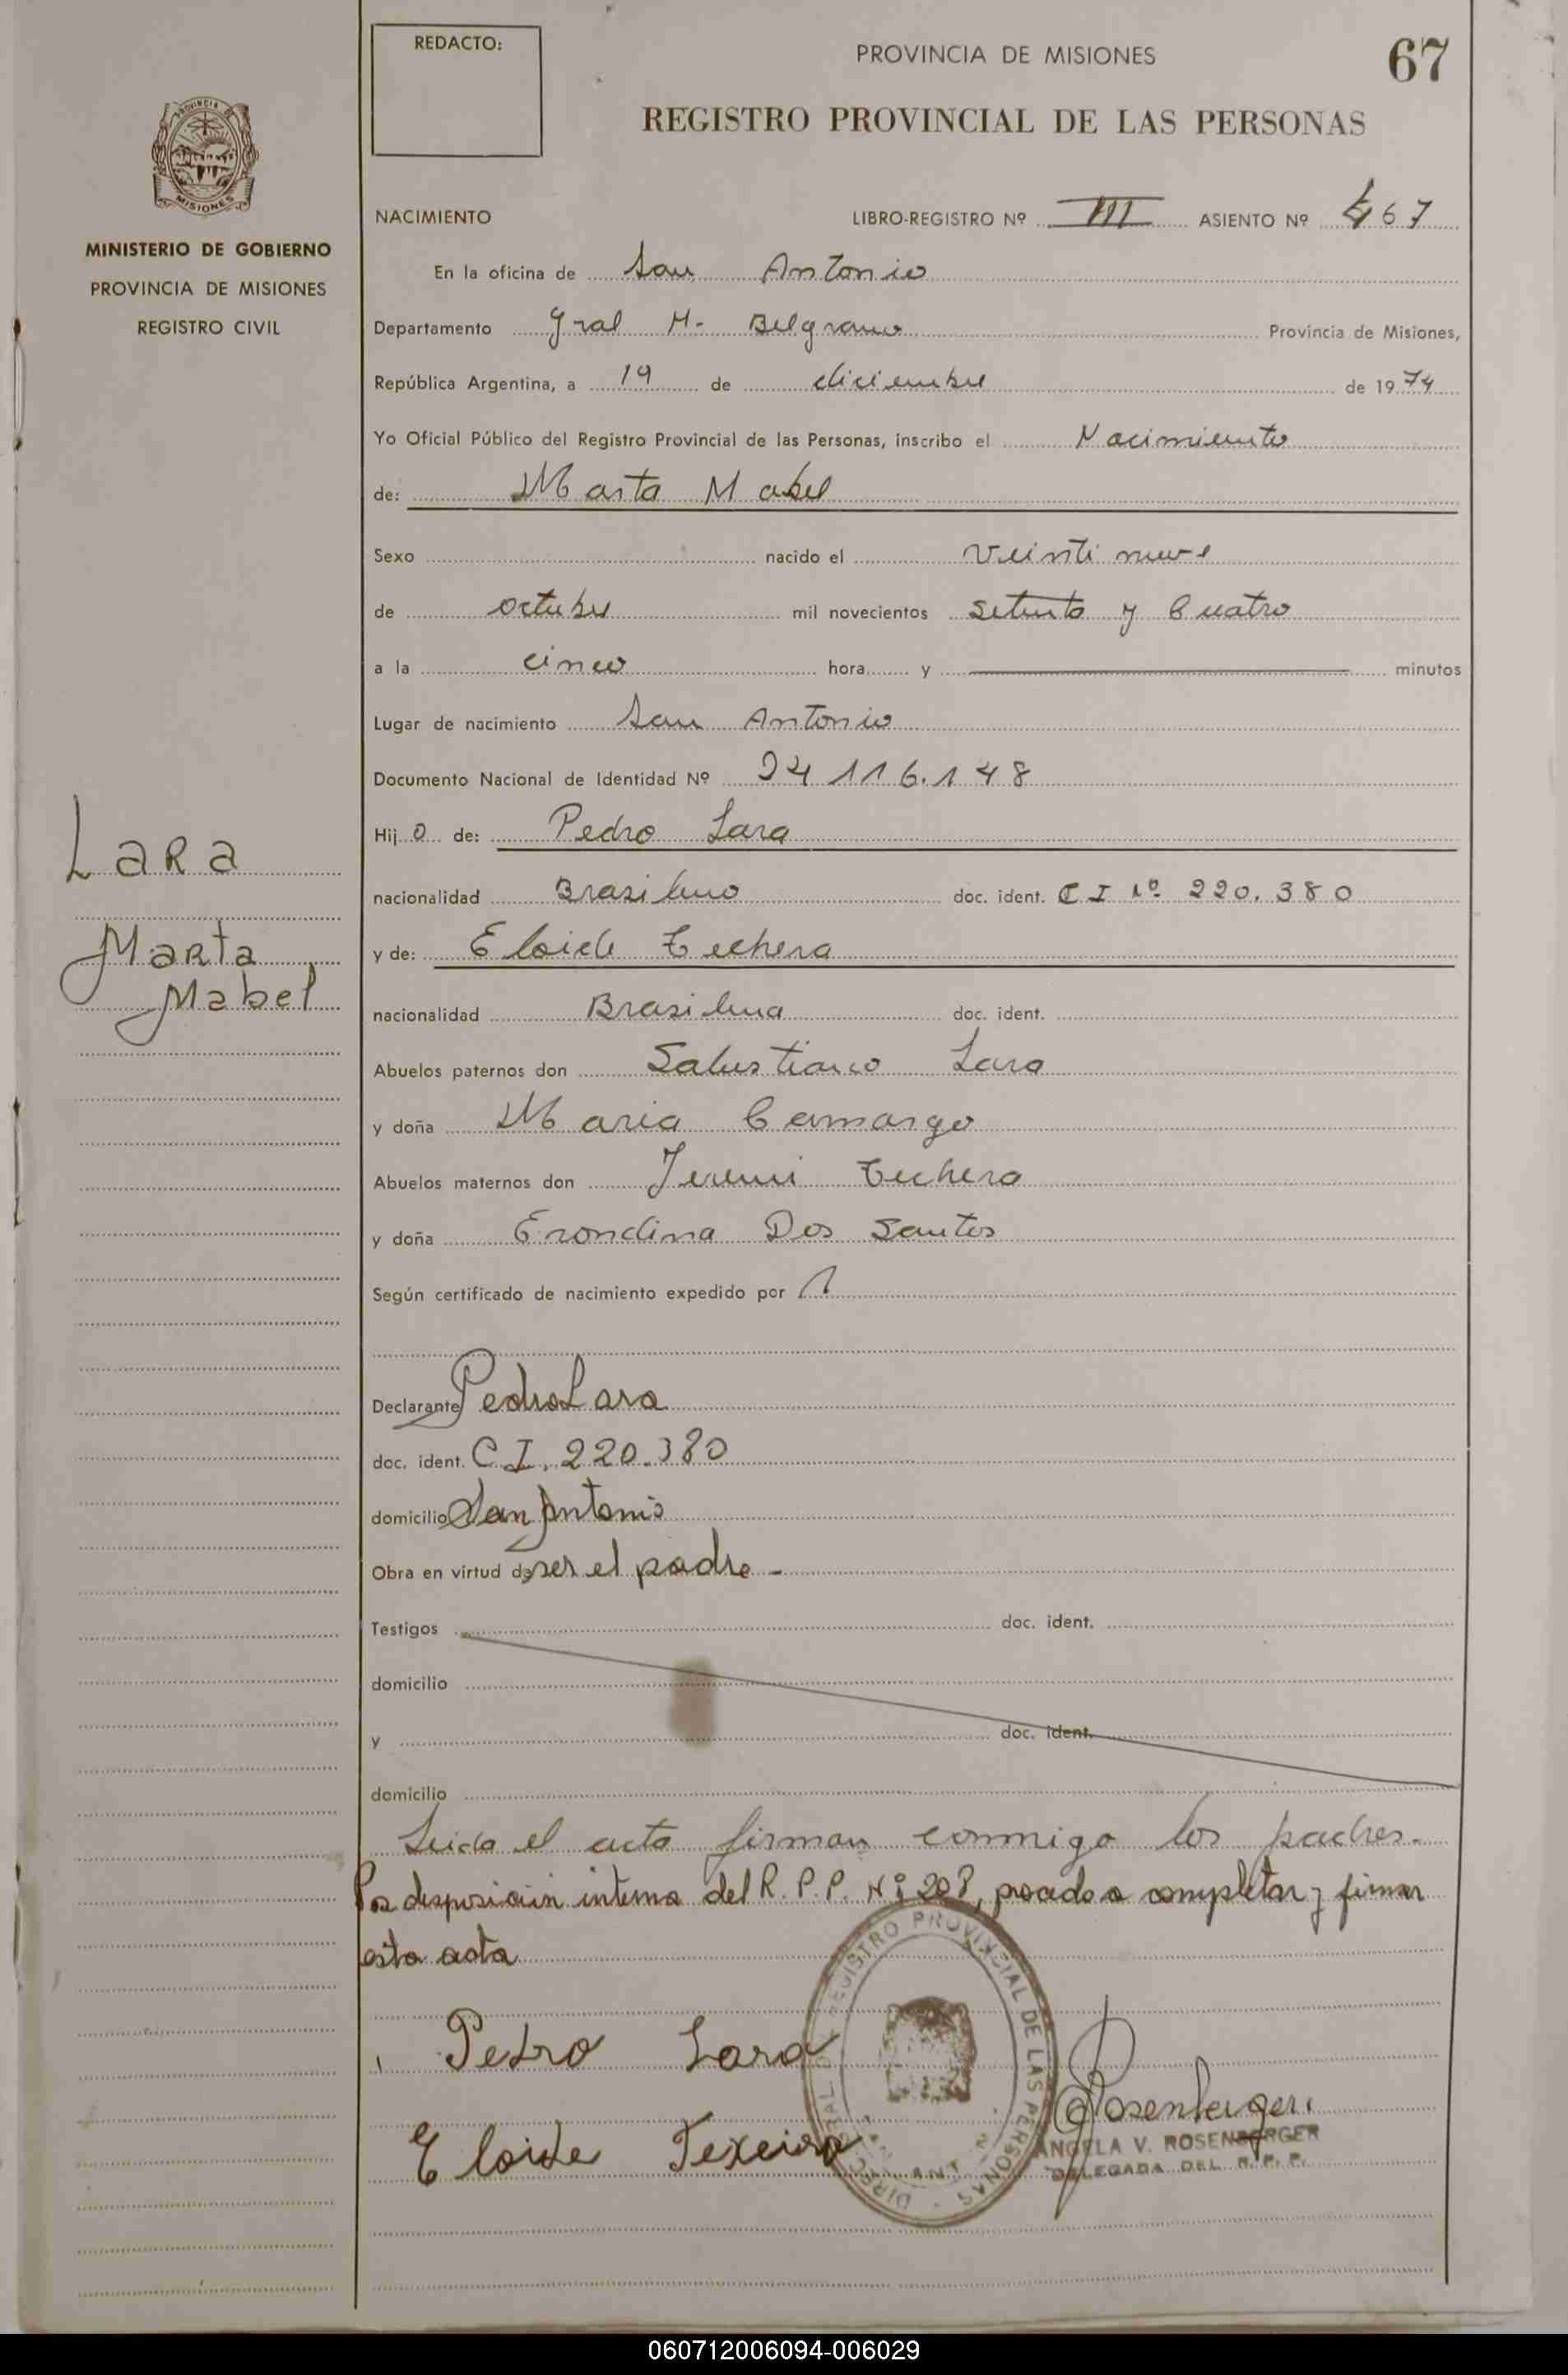 REDACTO:
PROVINCIA DE MISIONES
67
REGISTRO PROVINCIAL DE LAS PERSONAS
PROVINCIA
MISIONES
MINISTERIO DE GOBIERNO
PROVINCIA DE MISIONES
REGISTRO CIVIL
NACIMIENTO LIBRO-REGISTRO Nº III ASIENTO Nº 467
En la oficina de San Antonio
Departamento Gral M. Belgrano Provincia de Misiones,
República Argentina, a 19 de diciembre de 1974
Yo Oficial Público del Registro Provincial de las Personas, inscribo el Nacimiento
de: Marta Mabel
Sexo nacido el veintinueve
de octubre mil novecientos setenta y Cuatro
a la cinco hora y minutos
Lugar de nacimiento San Antonio
Documento Nacional de Identidad Nº 24116.148
Hijo de: Pedro Lara
Lara
nacionalidad Brasileno doc. ident. C I Nº 220.380
Marta
Mabel
y de: Eloide Techera
nacionalidad Brasilena doc. ident.
Abuelos paternos don Salustiano Lara
y doña Maria Camargo
Abuelos maternos don Jeremi Techera
y doña Erondina Dos Santos
Según certificado de nacimiento expedido por
Declarante Pedro Lara
doc. ident. C.I. 220.380
domicilio San Antonio
Obra en virtud de ser el padre -
Testigos doc. ident.
domicilio
y doc. ident.
domicilio
Leida el acta firman conmigo los padres.-
Por disposición interna del R.P.P. Nº 208, procedo a completar y firmar
esta acta
Pedro Lara
Eloide Texeira
REGISTRO PROVINCIAL DE LAS PERSONAS
Rosenberger
ANGELA V. ROSENBERGER
DELEGADA DEL R.P.P.
060712006094-006029